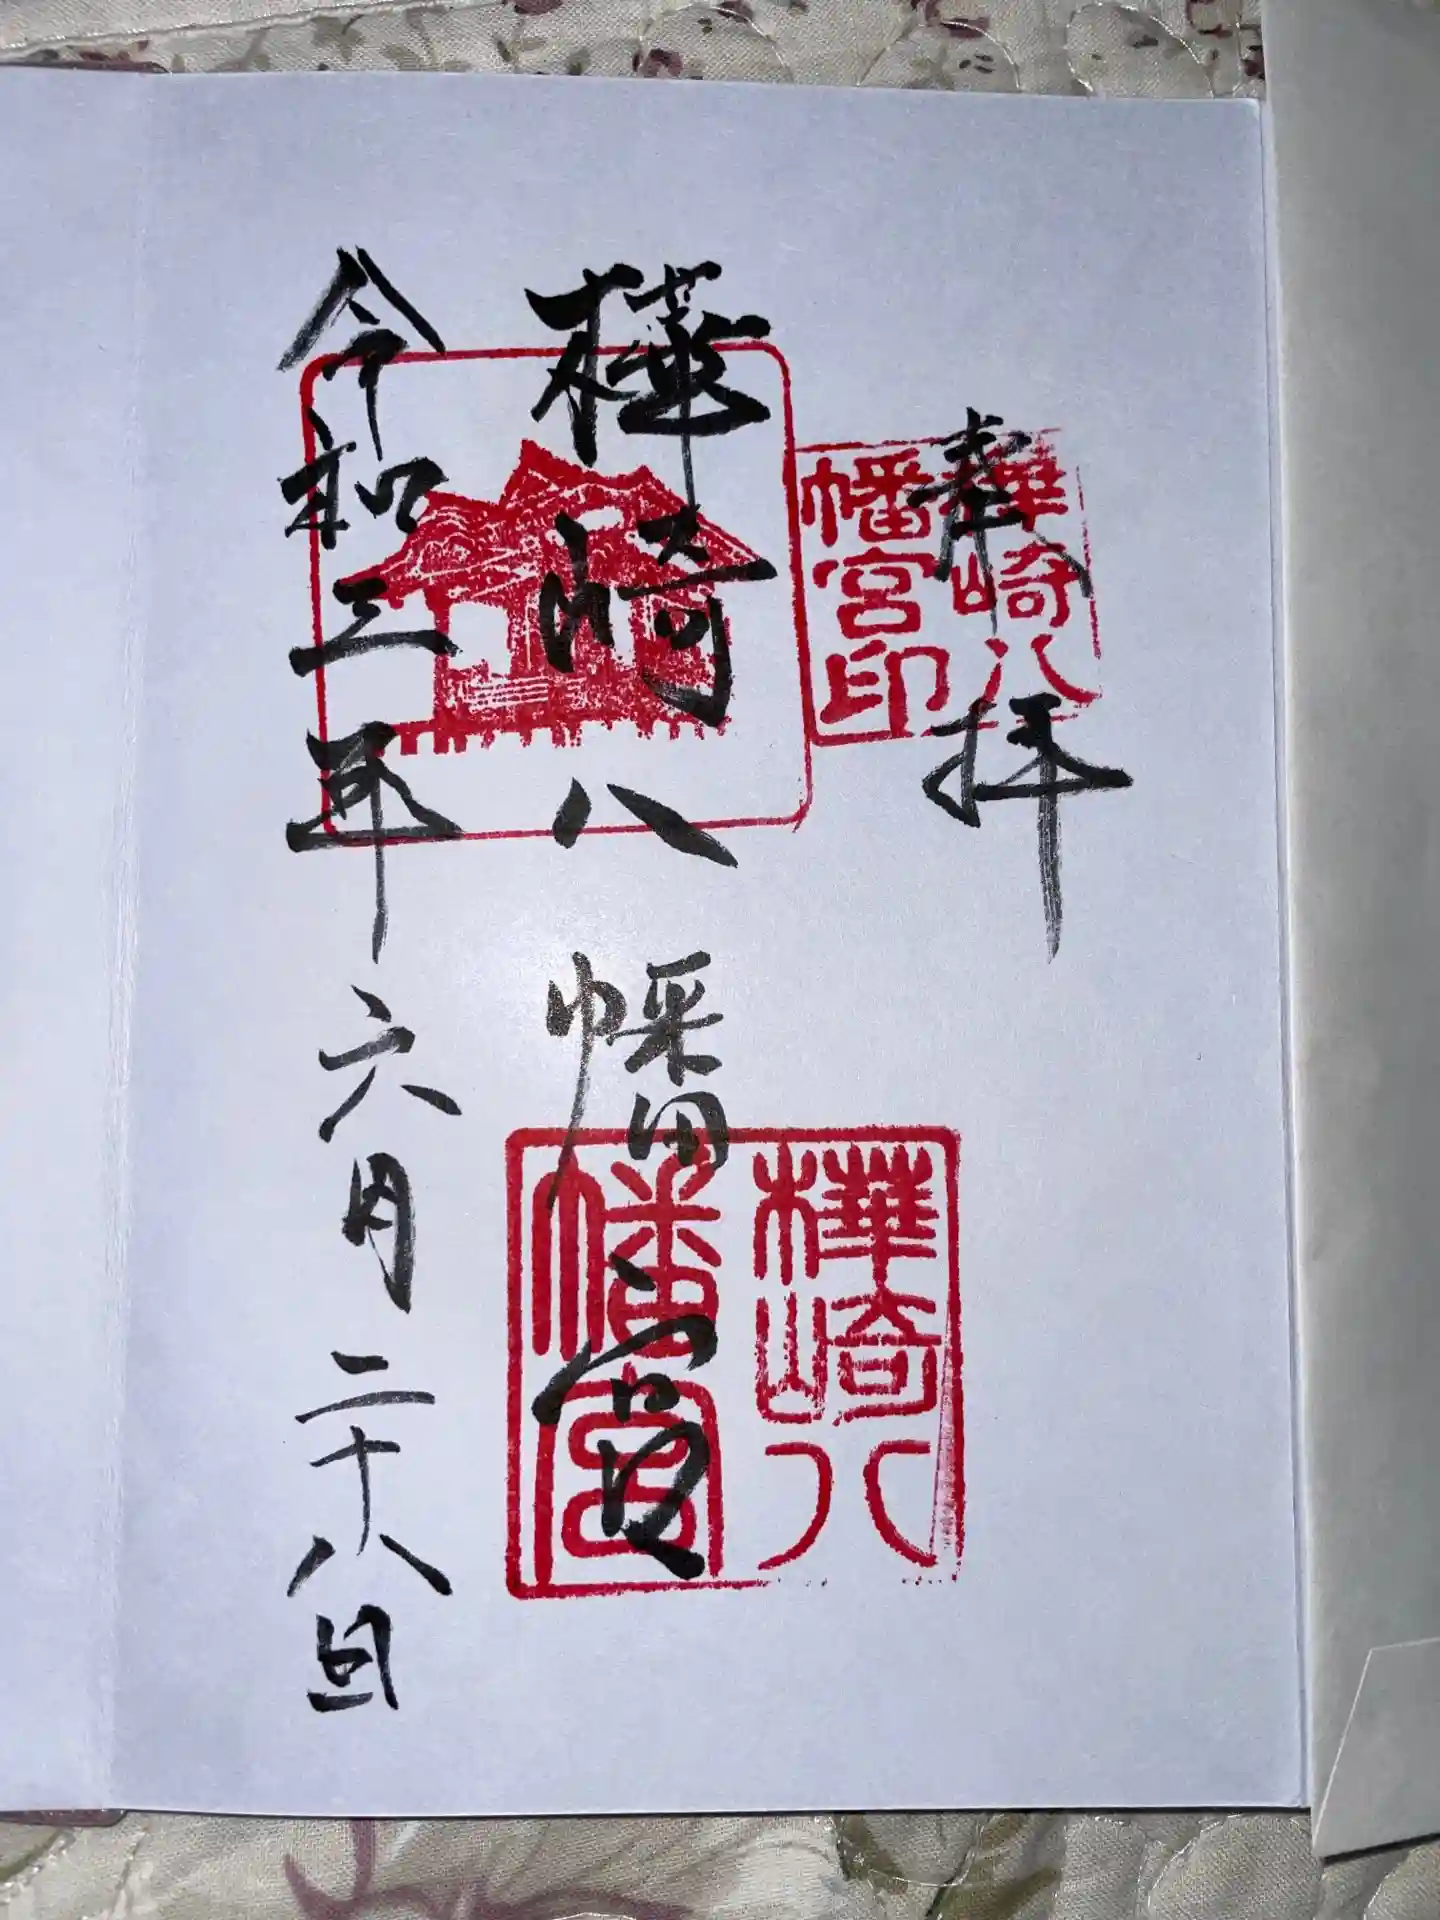 奉拝
樺崎八
幡宮印
樺崎八幡宮
樺崎八
幡宮
令和三年六月二十八日